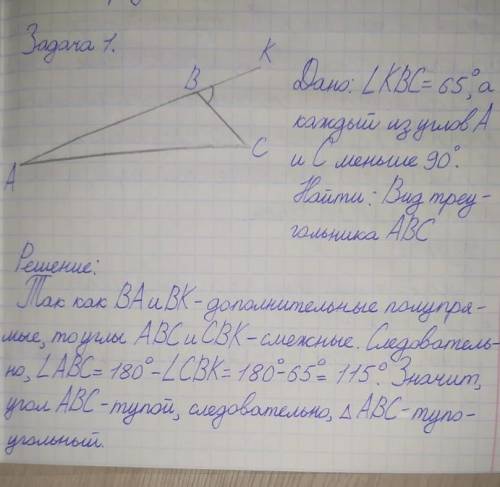 Задача 1.
K
B
C
A
Дано: ∠KBC = 65°, а
каждый из углов A
и C меньше 90°.
Найти: Вид треу-
гольника ABC
Решение:
Так как BA и BK - дополнительные полупря-
мые, то углы ABC и CBK - смежные. Следователь-
но, ∠ABC = 180° - ∠CBK = 180° - 65° = 115°. Значит,
угол ABC - тупой, следовательно, △ABC - тупо-
угольный.